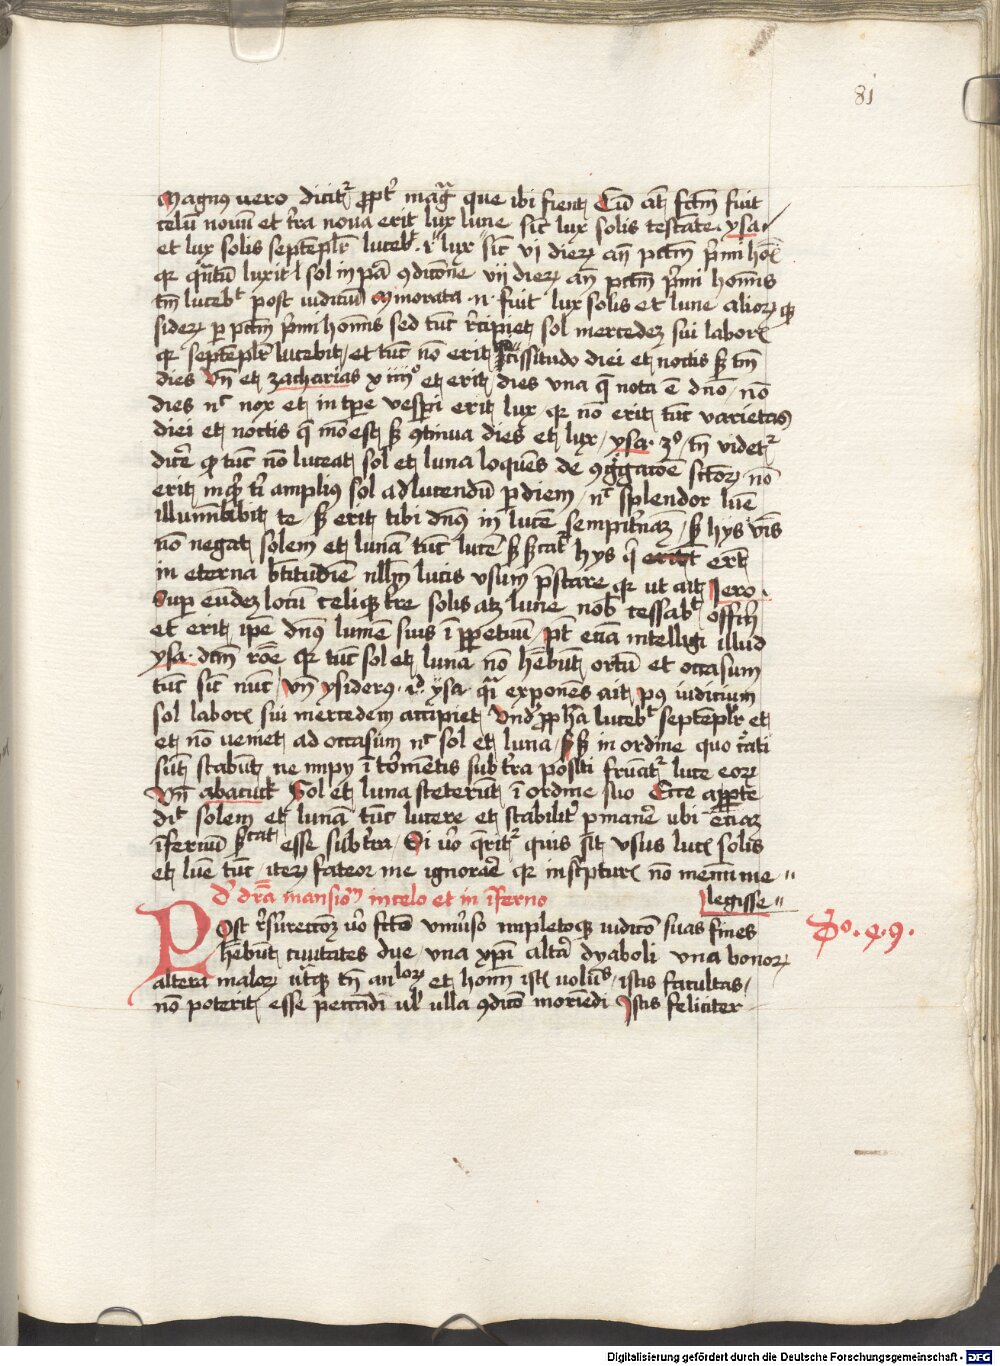 81
Magnus vero dicitur propter magna que ibi fient Cum autem factum fuit
celum novum et terra nova erit lux lune sicut lux solis testante ysa.
et lux solis septempliciter lucebit .i. lux sicut vi dierum ante peccatum primi hominis
quia quantum luxit sol in prima condicione vii dierum ante peccatum primi hominis
tantum lucebit post iudicium Minorata .n. fuit lux solis et lune aliorumque
siderum per peccatum primi hominis sed tunc recipiet sol mercedem sui laboris
quia septempliciter lucebit et tunc non erit vicissitudo diei et noctis sed tantum
dies Unde et zacharias xiiii° et erit dies una que nota est domino non
dies nec nox et in tempore vesperi erit lux quia non erit tunc varietas
diei et noctis que modo est sed continua dies et lux ysa. 3° tamen videtur
dicere quod tunc non luceat sol et luna loquens de congregacione sanctorum non
erit inquit tibi amplius sol ad lucendum per diem nec splendor lune
illuminabit te sed erit tibi dominus in lucem sempiternam sed hys verbis
non negat solem et lunam tunc lucere sed significat hys qui erunt
in eterna beatitudine nullum lucis usum prestare quia ut ait Jero.
Super eundem locum celique terre solis atque lune nobis cessabit officium
et erit ipse dominus lumen suis in perpetuum potest eciam intelligi illud
ysa. dictum ratione quia tunc sol et luna non habebunt ortum et occasum
tunc sicut nunc Unde ysiderus .id. ysa. quasi exponens ait post iudicium
sol laboris sui mercedem accipiet Unde propheta lucebit septempliciter et
et non veniet ad occasum nec sol et luna sed in ordine quo creati
sunt stabunt ne impy in tormentis sub terra positi fruantur luce eorum
Unde abacuck Sol et luna steterunt in ordine suo Ecce aperte
dicit solem et lunam tunc lucere et stabiliter permanere ubi eciam
infernum significat esse sub terra Si vero queritur quis sit usus lucis solis
et lune tunc iterum fateor me ignorare quia in scripturis non memini me
legisse
De differencia mansionum in celo et in inferno
Post resurrectionem vero facto universo impletoque iudicio suas fines
habebunt civitates due una xpi altera dyaboli una bonorum
altera malorum utraque tamen angelorum et hominum istis voluntas istis facultas
non poterit esse peccandi vel ulla condicio moriendi Istis feliciter
Digitalisierung gefördert durch die Deutsche Forschungsgemeinschaft - DFG